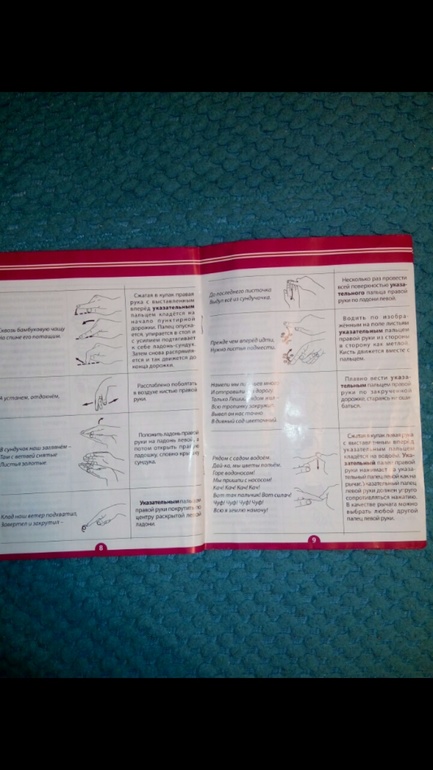 Сквозь бамбуковую чащу
Сжатая в кулак правая
рука с выставленным
вперёд указательным
пальцем кладётся на
начало пунктирной
дорожки. Палец опуска-
ется, упирается в стол и
с усилием подтягивает
к себе ладонь-сундук.
Затем снова распрямля-
ется и так движется до
конца дорожки.
устанем, отдохнём,
Расслабленно поболтать
в воздухе кистью правой
руки.
В сундучок наш заглянём –
Там с ветвей снятые
Листья золотые.
Положить ладонь правой
руки на ладонь левой, а
потом открыть правую
ладошку, словно крышку
сундука.
Клад наш ветер подхватил,
Завертел и закрутил –
Указательным пальцем
правой руки покрутить по
центру раскрытой левой
ладони.
8
До последнего листочка
Выдул всё из сундучочка.
Несколько раз провести
всей поверхностью указа-
тельного пальца правой
руки по ладони левой.
Прежде чем вперёд идти,
Нужно листья подмести.
Водить по изобра-
жённым на поле листьям
указательным пальцем
правой руки из стороны
в сторону как метлой.
Кисть движется вместе с
пальцем.
И отправимся в дорогу.
Только Леший
Всю тропинку закрутил.
Вывел он нас точно
В дивный сад цветочный.
Плавно вести указа-
тельным пальцем правой
руки по закрученной
дорожке, стараясь не оши-
баться.
Рядом с садом водоём.
Дай-ка, мы цветы польём.
Горе водоносам!
Мы пришли с насосом!
Кач! Кач! Кач! Кач!
Вит тот пальчик! Вот силач!
Чуф! Чуф! Чуф! Чуф!
Всю я землю намочу!
Сжатая в кулак правая рука
с выставленным вперёд
указательным пальцем
кладётся на ковролин. Ука-
зательный палец правой
руки нажимает на
указательный палец левой как на
рычаг. Указательный палец
левой руки должен упруго
сопротивляться нажатию.
В качестве рычага можно
выбрать любой другой
палец левой руки.
9